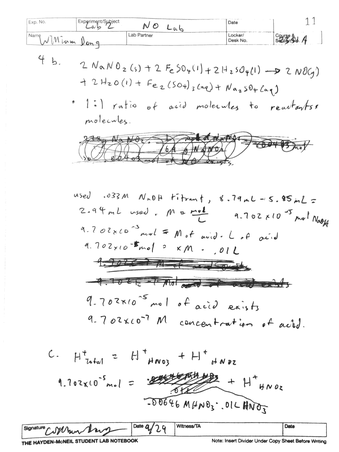 Exp. No.
Experiment/Subject
Lab 2 NO Lab
Date
11
Name
William Dong
Lab Partner
Locker/
Desk No.
A
4 b. 2 NaNO2 (s) + 2 FeSO4 (l) + 2 H2SO4 (l) → 2 NO(g)
+ 2 H2O (l) + Fe2(SO4)3 (aq) + Na2SO4 (aq)
• 1:1 ratio of acid molecules to reactants
molecules.
used .032M NaOH titrant, 8.79mL - 5.85mL =
2.94mL used. M = mol/L 9.702x10^-5 mol NaOH
9.702x10^-5 mol = M of acid · L of acid
9.702x10^-5 mol = xM · .01L
9.702x10^-5 mol of acid exists
9.702x10^-3 M concentration of acid.
C. H+ Total = H+ HNO3 + H+ HNO2
9.702x10^-5 mol = + H+ HNO2
.00646 M HNO3 · .01L HNO3
Signature
Date 9/24
Witness/TA
Date
THE HAYDEN-McNEIL STUDENT LAB NOTEBOOK
Note: Insert Divider Under Copy Sheet Before Writing